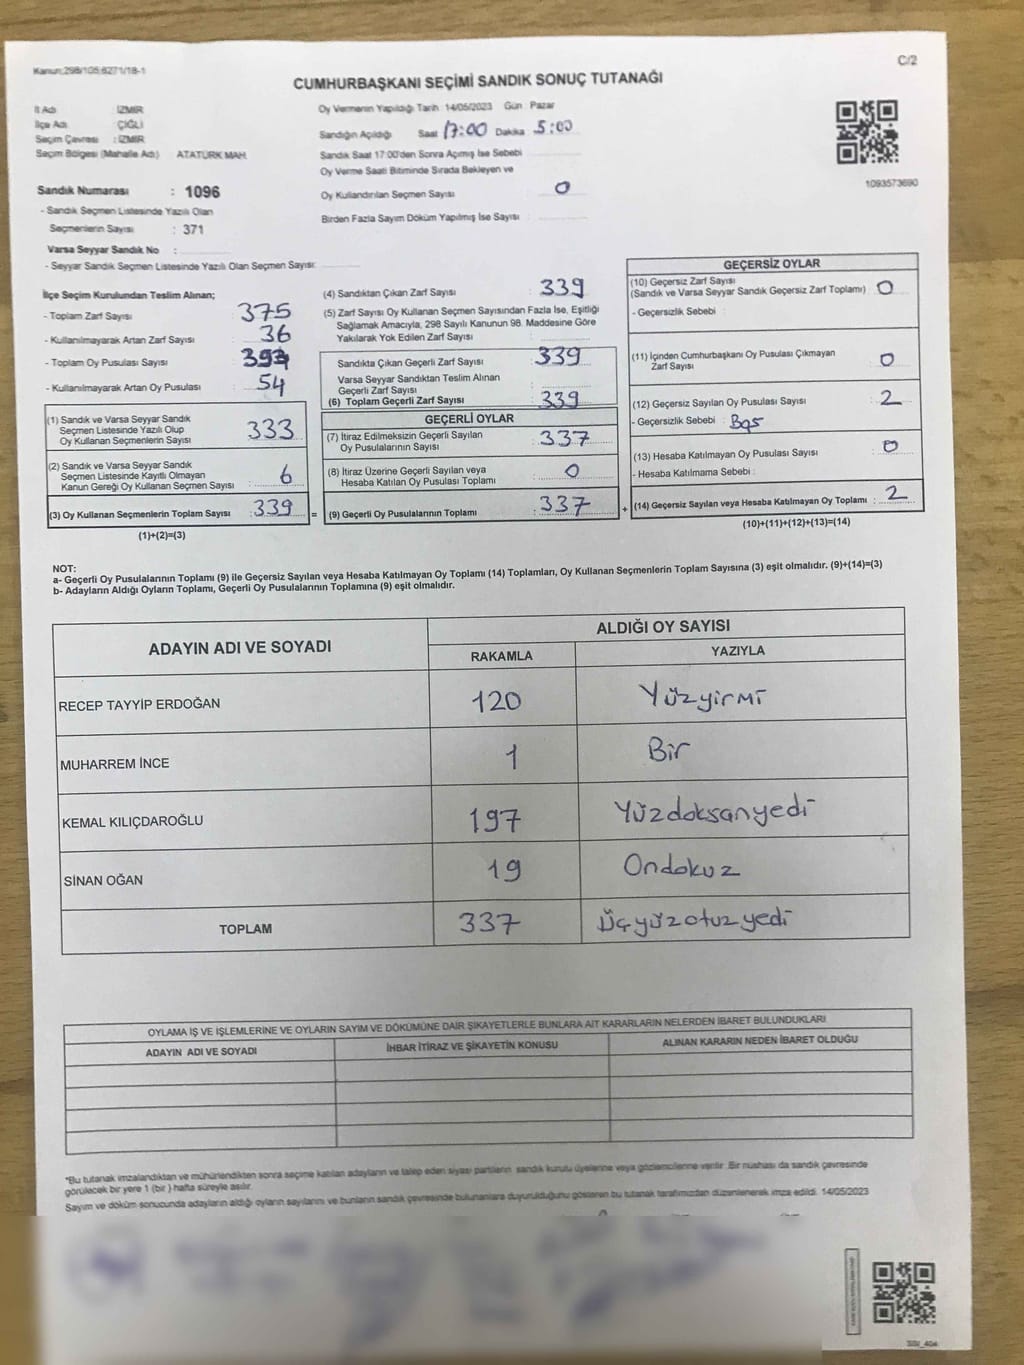 Kanun;298/105;6271/18-1
C/2
CUMHURBAŞKANI SEÇİMİ SANDIK SONUÇ TUTANAĞI
İl Adı : İZMİR
İlçe Adı : ÇİĞLİ
Seçim Çevresi : İZMİR
Seçim Bölgesi (Mahalle Adı) ATATÜRK MAH.
Sandık Numarası : 1096
- Sandık Seçmen Listesinde Yazılı Olan
Seçmenlerin Sayısı : 371
Varsa Seyyar Sandık No :
- Seyyar Sandık Seçmen Listesinde Yazılı Olan Seçmen Sayısı:
Oy Vermenin Yapıldığı Tarih 14/05/2023 Gün : Pazar
Sandığın Açıldığı Saat 17:00 Dakika 5:00
Sandık Saat 17:00'den Sonra Açımış İse Sebebi
Oy Verme Saati Bitiminde Sırada Bekleyen ve
Oy Kullandırılan Seçmen Sayısı 0
Birden Fazla Sayım Döküm Yapılmış İse Sayısı
1093573690
İlçe Seçim Kurulundan Teslim Alınan;
- Toplam Zarf Sayısı : 375
- Kullanılmayarak Artan Zarf Sayısı : 36
- Toplam Oy Pusulası Sayısı : 393
- Kullanılmayarak Artan Oy Pusulası : 54
(1) Sandık ve Varsa Seyyar Sandık
Seçmen Listesinde Yazılı Olup
Oy Kullanan Seçmenlerin Sayısı : 333
(2) Sandık ve Varsa Seyyar Sandık
Seçmen Listesinde Kayıtlı Olmayan
Kanun Gereği Oy Kullanan Seçmen Sayısı : 6
(3) Oy Kullanan Seçmenlerin Toplam Sayısı : 339 =
(1)+(2)=(3)
(4) Sandıktan Çıkan Zarf Sayısı : 339
(5) Zarf Sayısı Oy Kullanan Seçmen Sayısından Fazla İse, Eşitliği
Sağlamak Amacıyla, 298 Sayılı Kanunun 98. Maddesine Göre
Yakılarak Yok Edilen Zarf Sayısı :
Sandıkta Çıkan Geçerli Zarf Sayısı : 339
Varsa Seyyar Sandıktan Teslim Alınan
Geçerli Zarf Sayısı :
(6) Toplam Geçerli Zarf Sayısı : 339
GEÇERLİ OYLAR
(7) İtiraz Edilmeksizin Geçerli Sayılan
Oy Pusulalarının Sayısı : 337
(8) İtiraz Üzerine Geçerli Sayılan veya
Hesaba Katılan Oy Pusulası Toplamı : 0
(9) Geçerli Oy Pusulalarının Toplamı : 337 +
GEÇERSİZ OYLAR
(10) Geçersiz Zarf Sayısı
(Sandık ve Varsa Seyyar Sandık Geçersiz Zarf Toplamı) : 0
- Geçersizlik Sebebi :
(11) İçinden Cumhurbaşkanı Oy Pusulası Çıkmayan
Zarf Sayısı : 0
(12) Geçersiz Sayılan Oy Pusulası Sayısı : 2
- Geçersizlik Sebebi : Boş
(13) Hesaba Katılmayan Oy Pusulası Sayısı : 0
- Hesaba Katılmama Sebebi :
(14) Geçersiz Sayılan veya Hesaba Katılmayan Oy Toplamı : 2
(10)+(11)+(12)+(13)=(14)
NOT:
a- Geçerli Oy Pusulalarının Toplamı (9) ile Geçersiz Sayılan veya Hesaba Katılmayan Oy Toplamı (14) Toplamları, Oy Kullanan Seçmenlerin Toplam Sayısına (3) eşit olmalıdır. (9)+(14)=(3)
b- Adayların Aldığı Oyların Toplamı, Geçerli Oy Pusulalarının Toplamına (9) eşit olmalıdır.
ADAYIN ADI VE SOYADI ALDIĞI OY SAYISI
RAKAMLA YAZIYLA
RECEP TAYYİP ERDOĞAN 120 Yüzyirmi
MUHARREM İNCE 1 Bir
KEMAL KILIÇDAROĞLU 197 Yüzdoksanyedi
SİNAN OĞAN 19 Ondokuz
TOPLAM 337 Üçyüzotuzyedi
OYLAMA İŞ VE İŞLEMLERİNE VE OYLARIN SAYIM VE DÖKÜMÜNE DAİR ŞİKAYETLERLE BUNLARA AİT KARARLARIN NELERDEN İBARET BULUNDUKLARI
ADAYIN ADI VE SOYADI İHBAR İTİRAZ VE ŞİKAYETİN KONUSU ALINAN KARARIN NEDEN İBARET OLDUĞU
*Bu tutanak imzalandıktan ve mühürlendikten sonra seçime katılan adayların ve talep eden siyasi partilerin sandık kurulu üyelerine veya gözlemcilerine verilir. Bir nüshası da sandık çevresinde
görülecek bir yere 1 (bir) hafta süreyle asılır.
Sayım ve döküm sonucunda adayların aldığı oyların sayılarını ve bunların sandık çevresinde bulunanlara duyurulduğunu gösteren bu tutanak tarafımızdan düzenlenerek imza edildi. 14/05/2023